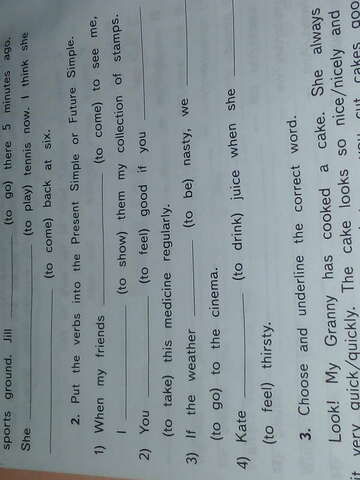 sports ground. Jill ________ (to go) there 5 minutes ago.
She ________ (to play) tennis now. I think she
________ (to come) back at six.
2. Put the verbs into the Present Simple or Future Simple.
1) When my friends ________ (to come) to see me,
I ________ (to show) them my collection of stamps.
2) You ________ (to feel) good if you ________
(to take) this medicine regularly.
3) If the weather ________ (to be) nasty, we ________
(to go) to the cinema.
4) Kate ________ (to drink) juice when she ________
(to feel) thirsty.
3. Choose and underline the correct word.
Look! My Granny has cooked a cake. She always
it very quick/quickly. The cake looks so nice/nicely and